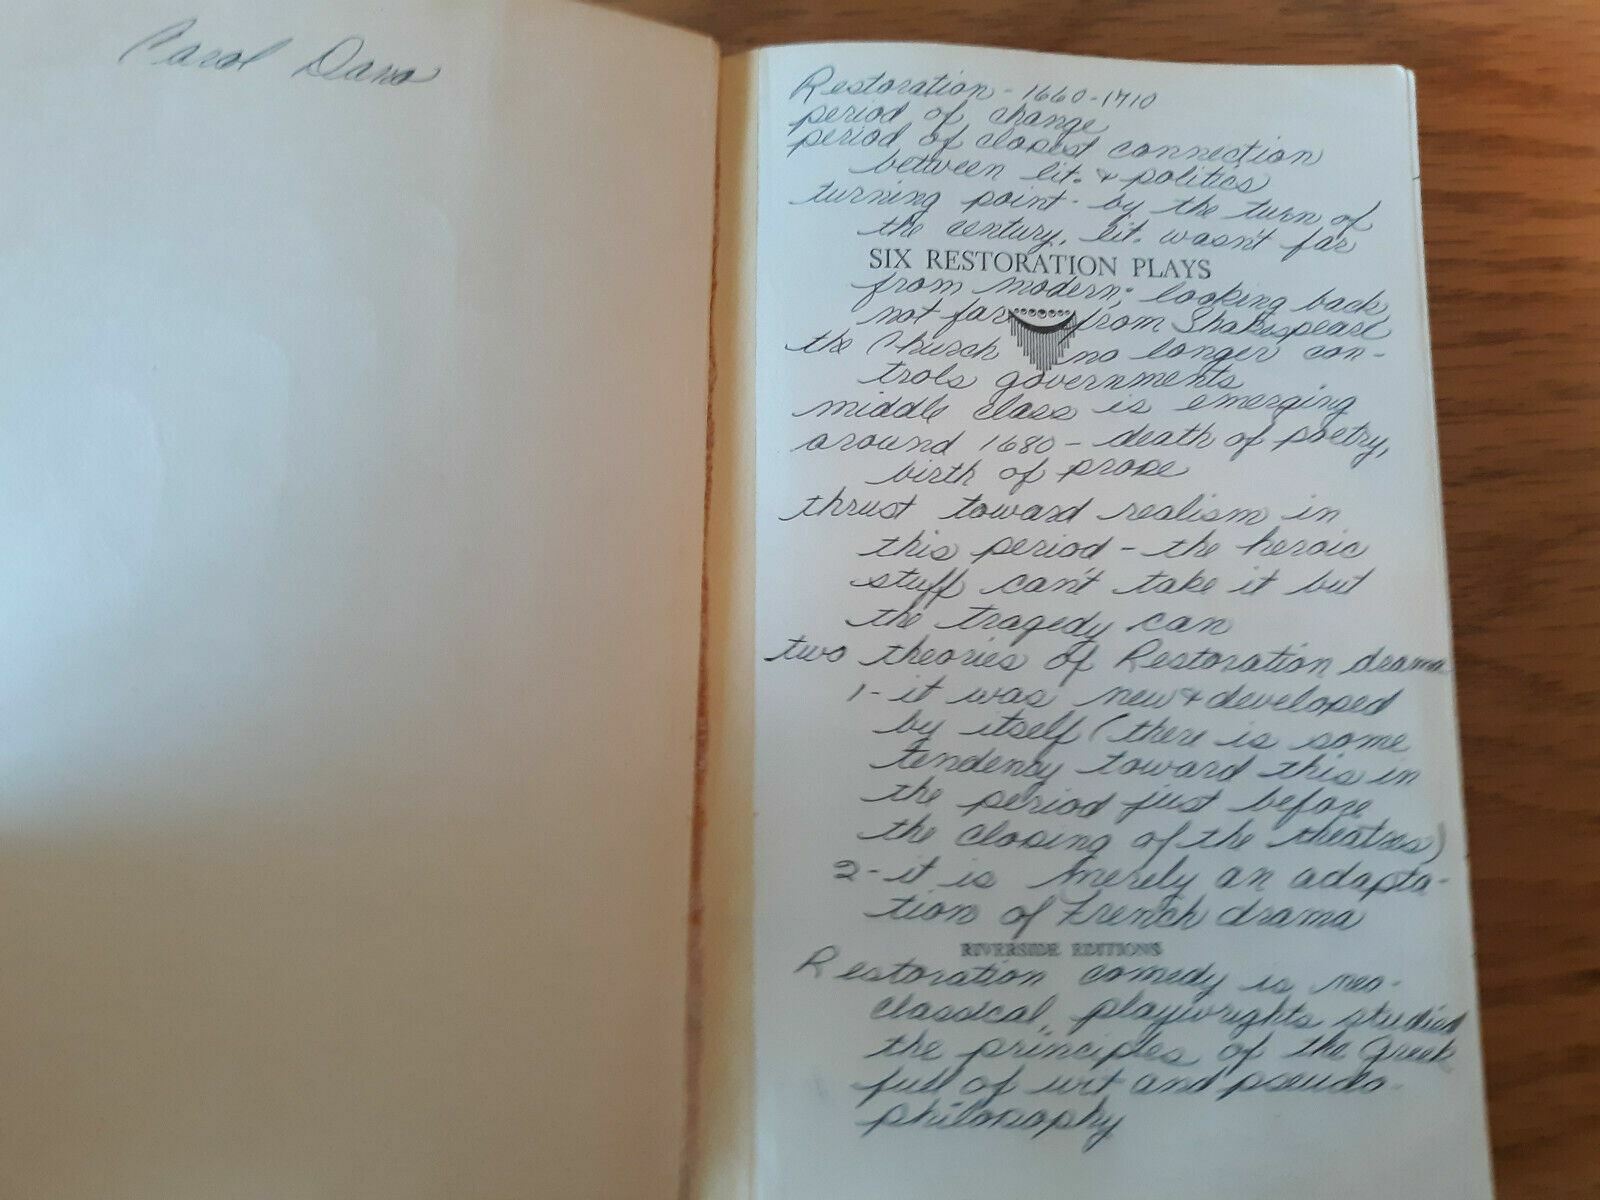 Carol Dana
Restoration - 1660-1710
period of change
period of closest connection
between lit. & politics
turning point - by the turn of
the century, lit. wasn't far
SIX RESTORATION PLAYS
from modern; looking back,
not far from Shakespeare
the Church no longer con-
trols governments
middle class is emerging
around 1680 - death of poetry,
birth of prose
thrust toward realism in
this period - the heroic
stuff can't take it but
the tragedy can
two theories of Restoration drama
1- it was new & developed
by itself (there is some
tendency toward this in
the period just before
the closing of the theatres)
2- it is merely an adapta-
tion of French drama
RIVERSIDE EDITIONS
Restoration comedy is neo-
classical, playwrights studied
the principles of the Greek
full of wit and pseudo-
philosophy